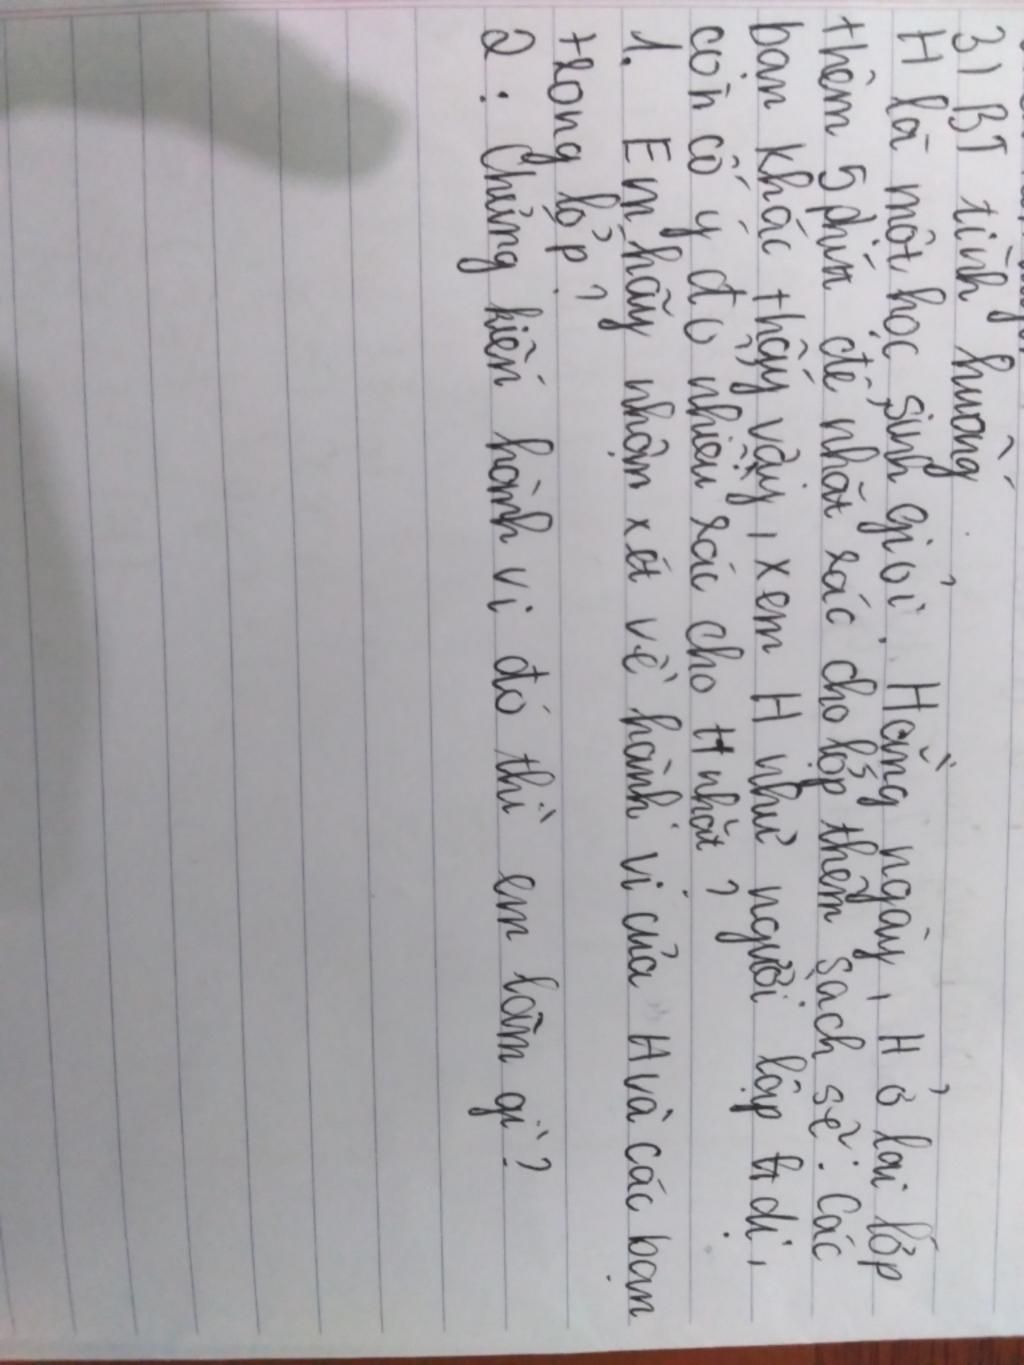 3) BT tình huống
H là một học sinh giỏi. Hằng ngày, H ở lại lớp
thêm 5 phút để nhặt rác cho lớp thêm sạch sẽ. Các
bạn khác thấy vậy, xem H như người lập dị,
còn cố ý đổ nhiều rác cho H nhặt?
1. Em hãy nhận xét về hành vi của H và các bạn
trong lớp?
2. Chứng kiến hành vi đó thì em làm gì?